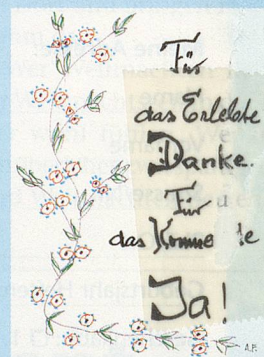 Für
das Erlebte
Danke.
Für
das Kommende
Ja!
A.F.